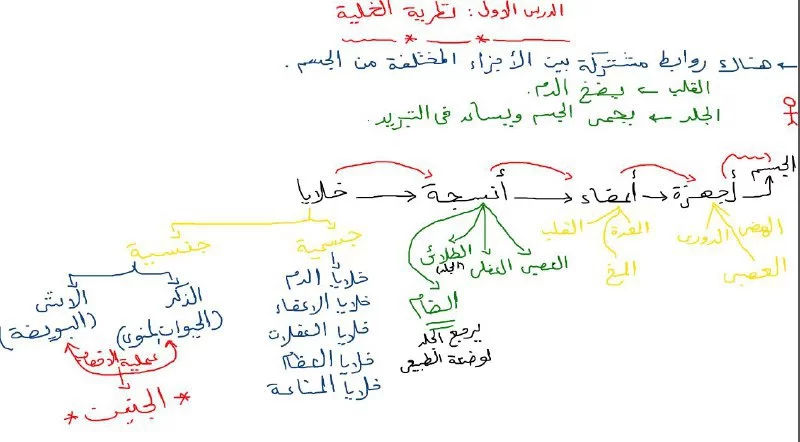 الدرس الاول: نظرية الخلية
هناك روابط مشتركة بين الأجزاء المختلفة من الجسم.
القلب ← يضخ الدم.
الجلد ← يحمى الجسم ويساعد فى التبريد.
الجسم
خلايا → أنسجة → أعضاء → أجهزة
الهضمى الدورى
العصبى
المعدة القلب
المخ
العصبى العضلى الطلائى
(الجلد)
الضام
يرجع الجلد
لوضعة الطبيعى
جسمية
خلايا الدم
خلايا الاعضاء
خلايا العضلات
خلايا العظام
خلايا المناعة
جنسية
الذكر
(الحيوان المنوى)
الانثى
(البويضة)
عملية الاخصاب
* الجنين *